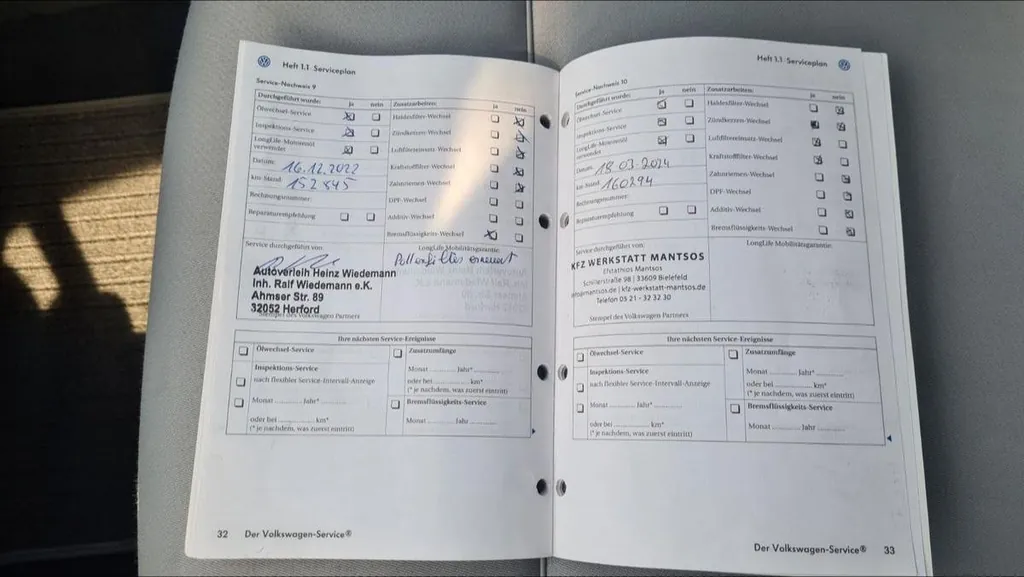 Heft 1.1 Serviceplan
Service-Nachweis 9
Durchgeführt wurde: ja nein
Ölwechsel-Service
Inspektions-Service
LongLife-Motorenöl verwendet
Datum: 16.12.2022
km-Stand: 152845
Rechnungsnummer:
Reparaturempfehlung
Zusatzarbeiten: ja nein
Haldexfilter-Wechsel
Zündkerzen-Wechsel
Luftfiltereinsatz-Wechsel
Kraftstofffilter-Wechsel
Zahnriemen-Wechsel
DPF-Wechsel
Additiv-Wechsel
Bremsflüssigkeits-Wechsel
Service durchgeführt von:
Autoverleih Heinz Wiedemann
Inh. Ralf Wiedemann e.K.
Ahmser Str. 89
32052 Herford
Stempel des Volkswagen Partners
LongLife Mobilitätsgarantie:
Pollenfilter erneuert
Ihre nächsten Service-Ereignisse
Ölwechsel-Service
Inspektions-Service
nach flexibler Service-Intervall-Anzeige
Monat ............ Jahr* ............
oder bei ............ km*
(* je nachdem, was zuerst eintritt)
Zusatzumfänge
Monat ............ Jahr* ............
oder bei ............ km*
(* je nachdem, was zuerst eintritt)
Bremsflüssigkeits-Service
Monat ............ Jahr ............
32 Der Volkswagen-Service®
Heft 1.1 Serviceplan
Service-Nachweis 10
Durchgeführt wurde: ja nein
Ölwechsel-Service
Inspektions-Service
LongLife-Motorenöl verwendet
Datum: 18.03.2024
km-Stand: 160294
Rechnungsnummer:
Reparaturempfehlung
Zusatzarbeiten: ja nein
Haldexfilter-Wechsel
Zündkerzen-Wechsel
Luftfiltereinsatz-Wechsel
Kraftstofffilter-Wechsel
Zahnriemen-Wechsel
DPF-Wechsel
Additiv-Wechsel
Bremsflüssigkeits-Wechsel
Service durchgeführt von:
KFZ WERKSTATT MANTSOS
Efstathios Mantsos
Schillerstraße 98 | 33609 Bielefeld
@mantsos.de | kfz-werkstatt-mantsos.de
Telefon 05 21 - 32 32 30
Stempel des Volkswagen Partners
LongLife Mobilitätsgarantie:
Ihre nächsten Service-Ereignisse
Ölwechsel-Service
Inspektions-Service
nach flexibler Service-Intervall-Anzeige
Monat ............ Jahr* ............
oder bei ............ km*
(* je nachdem, was zuerst eintritt)
Zusatzumfänge
Monat ............ Jahr* ............
oder bei ............ km*
(* je nachdem, was zuerst eintritt)
Bremsflüssigkeits-Service
Monat ............ Jahr ............
Der Volkswagen-Service® 33